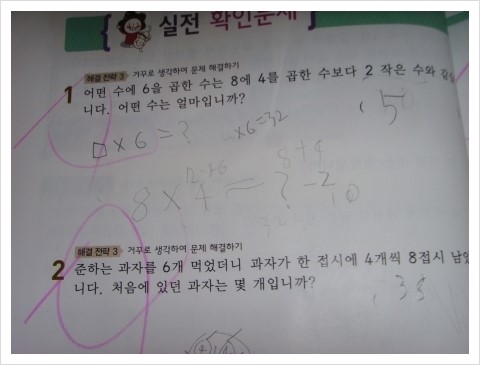 실전 확인문제
해결 전략 3 거꾸로 생각하여 문제 해결하기
1 어떤 수에 6을 곱한 수는 8에 4를 곱한 수보다 2 작은 수와 같습
니다. 어떤 수는 얼마입니까?
( 5
□×6=? ×6=32
8+4
8×4=?-2
10
해결 전략 3 거꾸로 생각하여 문제 해결하기
2 준하는 과자를 6개 먹었더니 과자가 한 접시에 4개씩 8접시 남았
니다. 처음에 있던 과자는 몇 개입니까?